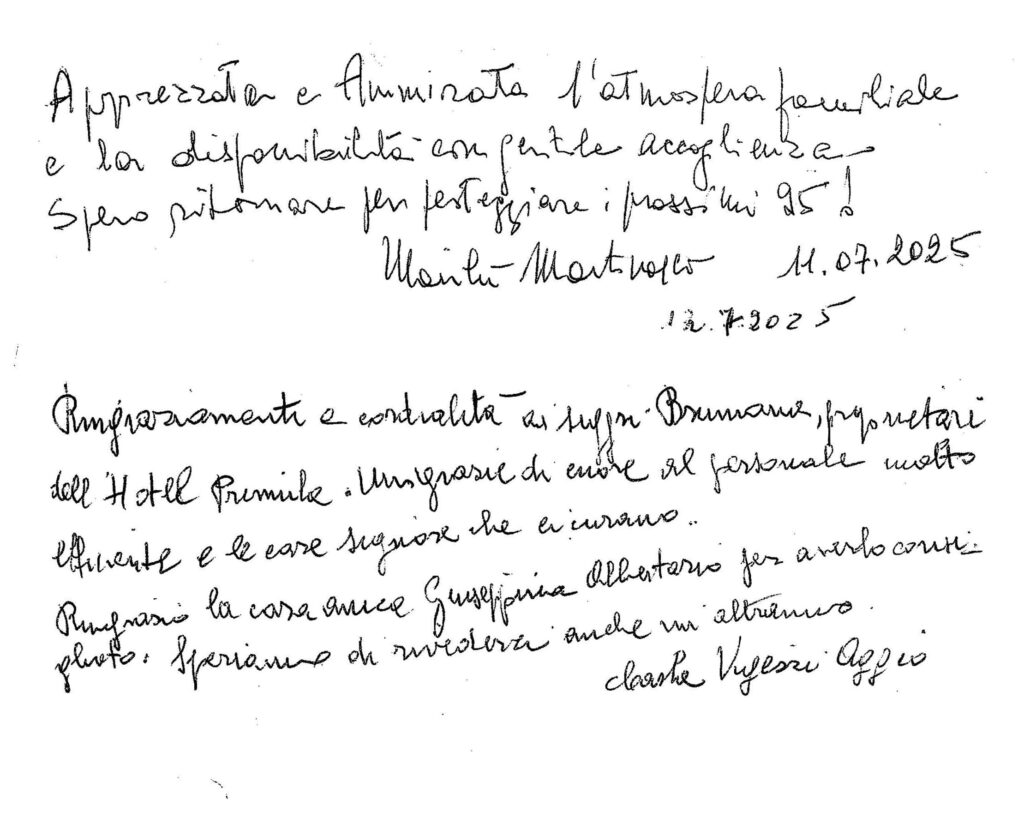 Apprezzata e Ammirata l'atmosfera familiale
e la disponibilità con gentile accoglienza
Spero ritornare per festeggiare i prossimi 95!
11.07.2025
12.7.2025
Ringraziamenti e cordialità ai sigg.ri, proprietari
dell'Hotel. Un grazie di cuore al personale molto
efficiente e le care signore che ci curano..
Ringrazio la cara amica Giuseppina Albertario per averlo consi-
gliato. Speriamo di rivederci anche un altr'anno.
Aggio